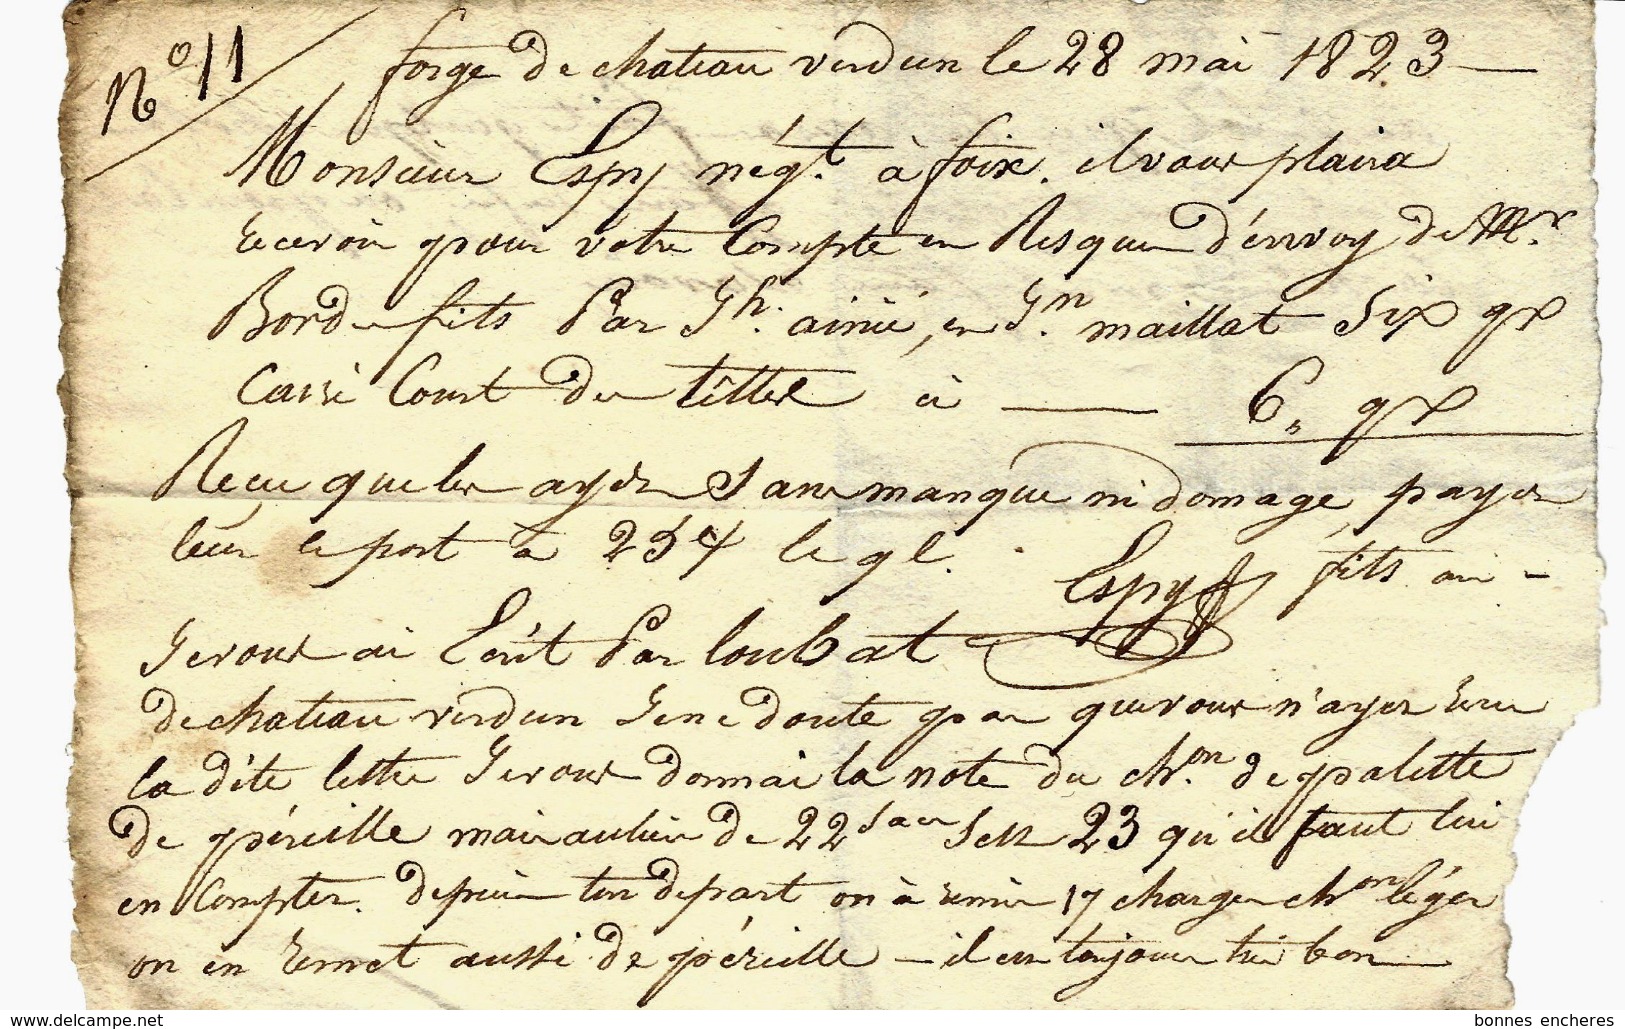 N° 11
forge de chateau verdun le 28 mai 1823
Monsieur Espy négt. à foix. il vous plaira
recevoir pour votre Compte en Risques d'envoy de Mr.
Borde fils Par Jh. ainé, en Jn maillat Six qx
Carré Court de à 6 „ qx
Reçu que les ayez Sans manque ni domage payez
leur le port à le ql. Espy fils ai -
Je vous ai Ecrit Par loubat
de chateau verdun Je ne doute pas que vous n'ayez reçu
la dite lettre Je vous donnai la note du chon. de palette
de péreille mais aulieu de 22 sacs Sest 23 qu'il faut lui
en Compter. depuis ton depart on à remis 17 charges chon léger
on en remet aussi de péreille - il est toujours tres bon
www.delcampe.net
bonnes encheres